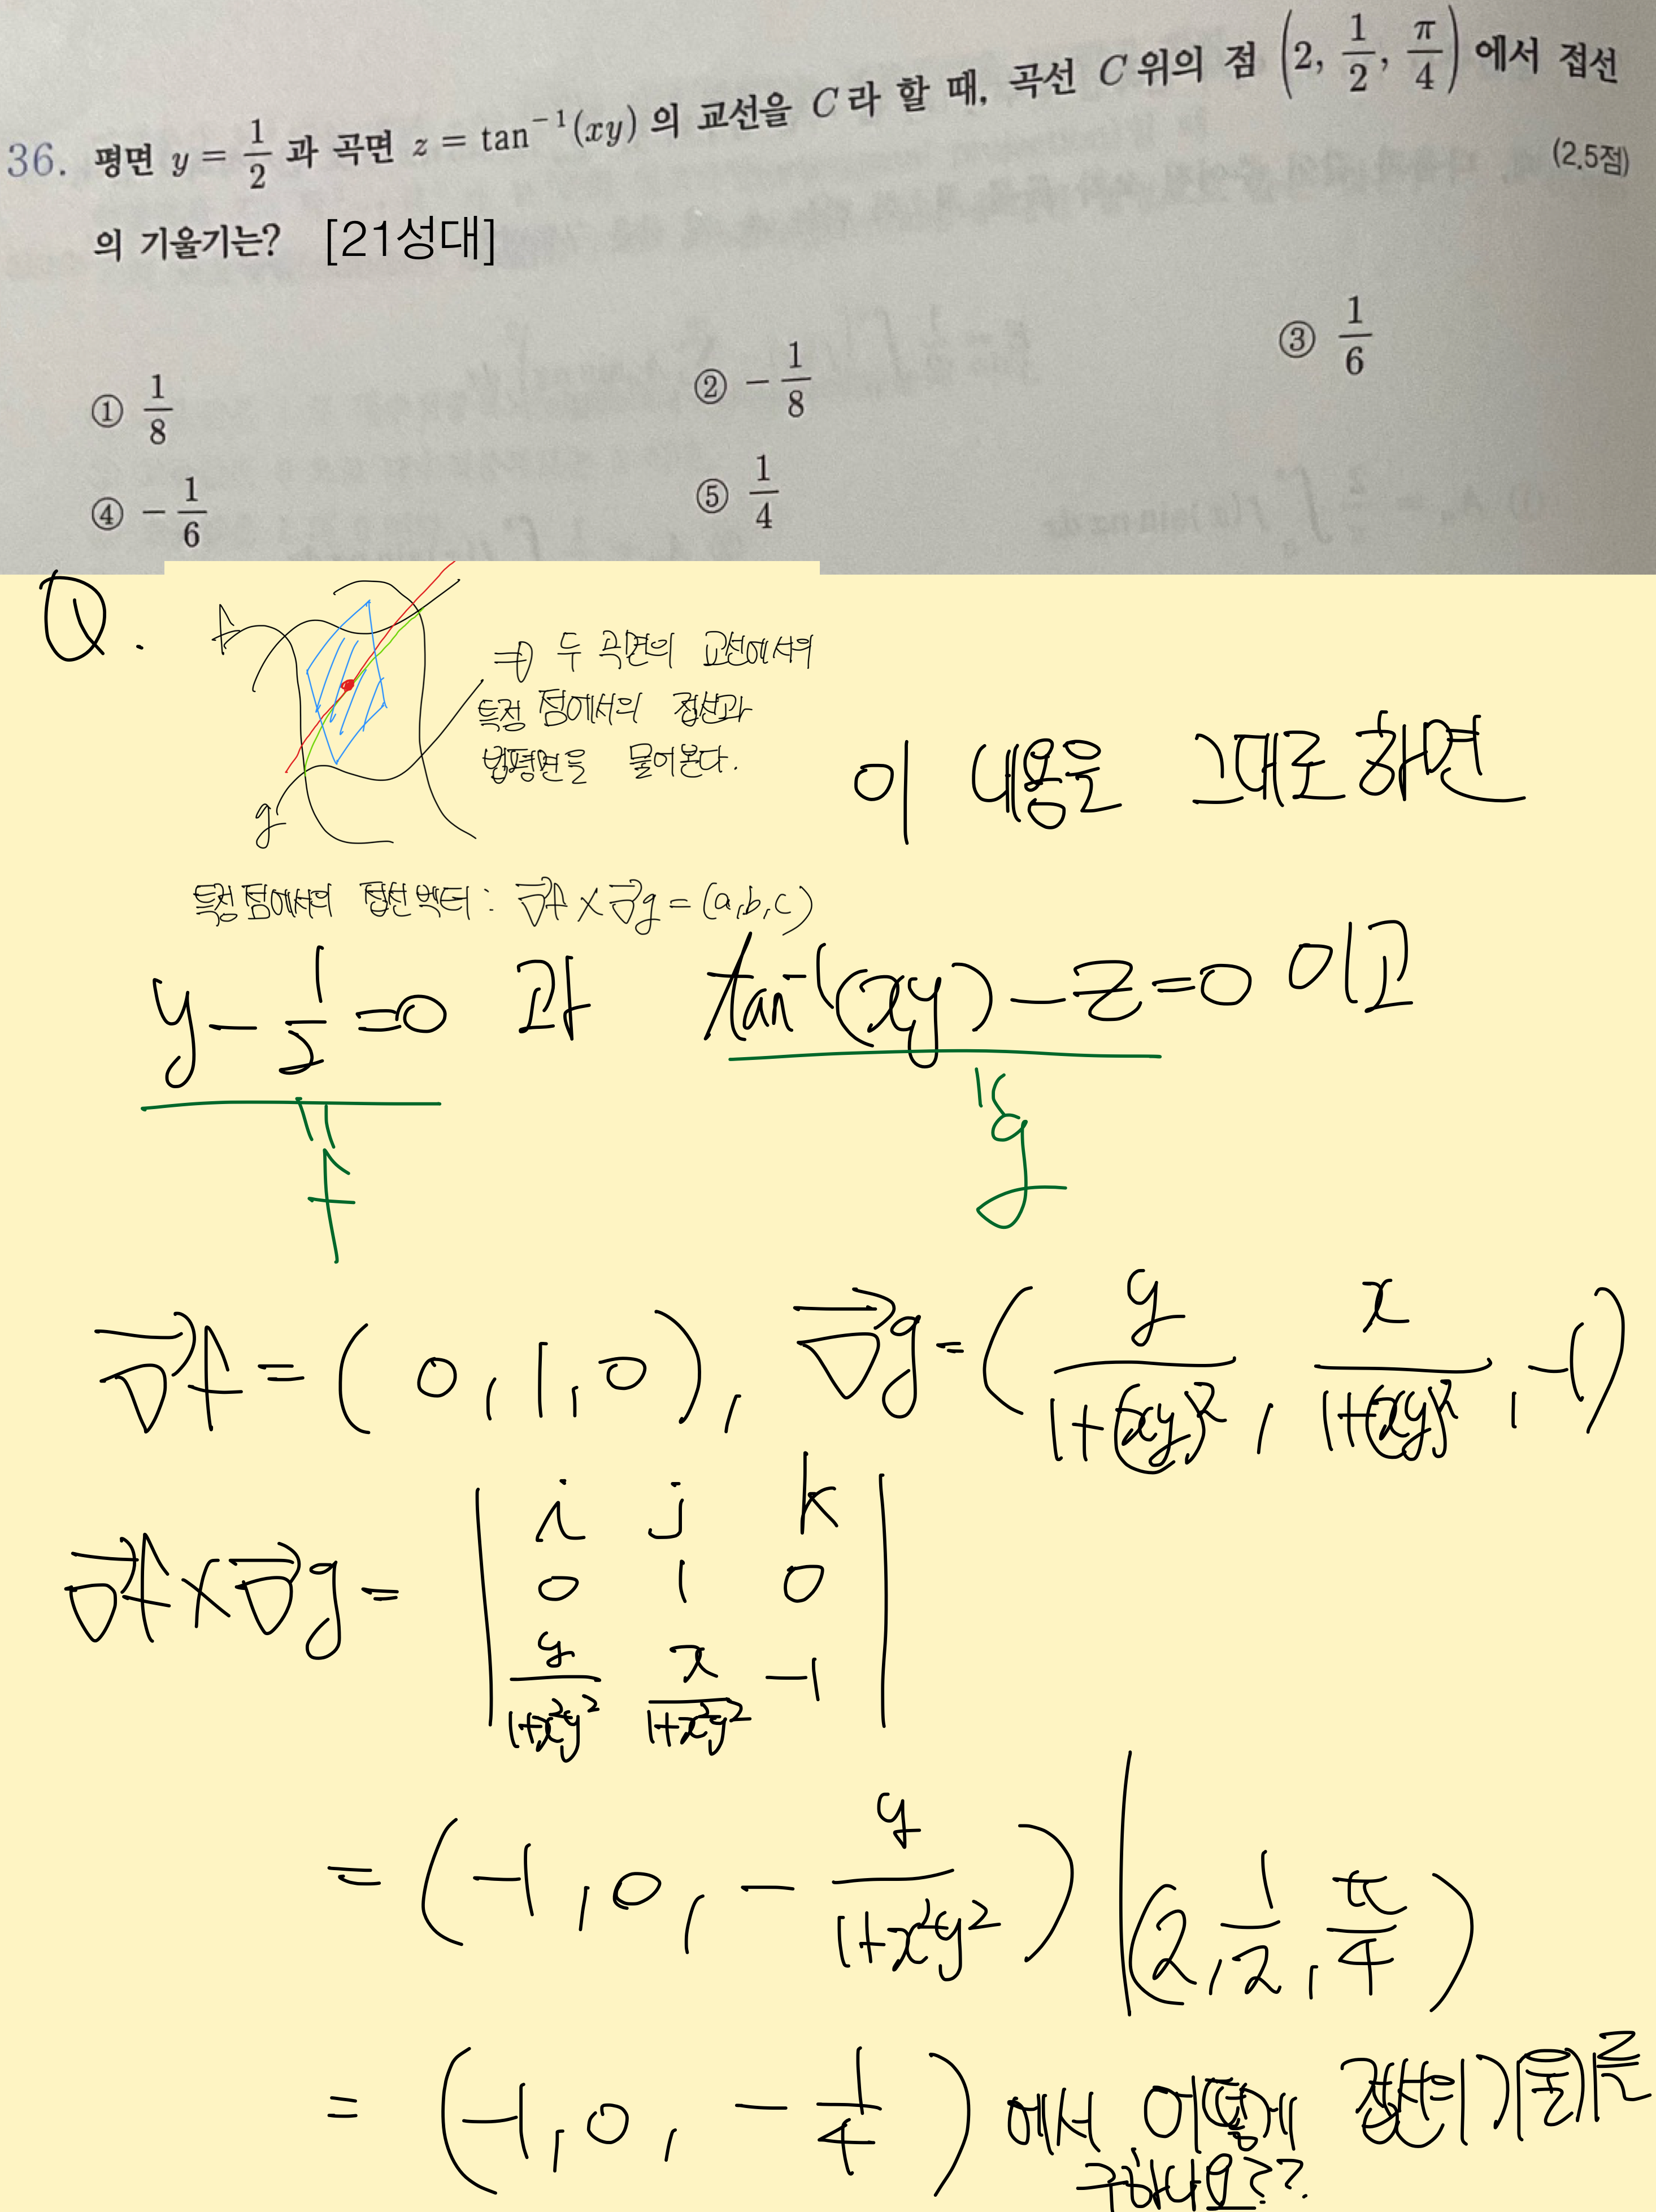 36. 평면 y = 1/2 과 곡면 z = tan⁻¹(xy) 의 교선을 C 라 할 때, 곡선 C 위의 점 (2, 1/2, π/4) 에서 접선
의 기울기는? [21성대] (2.5점)
① 1/8 ② -1/8 ③ 1/6
④ -1/6 ⑤ 1/4
Q.
f
g
⇒ 두 곡면의 교선에서의
특정 점에서의 접선과
법평면을 물어본다.
이 내용을 그대로 하면
특정 점에서의 접선벡터 : ∇f × ∇g = (a, b, c)
y - 1/2 = 0 과 tan⁻¹(xy) - z = 0 이고
" f " g
∇f = (0, 1, 0), ∇g = (y/(1+(xy)²), x/(1+(xy)²), -1)
∇f × ∇g = | i j k |
| 0 1 0 |
| y/(1+x²y²) x/(1+x²y²) -1 |
= (-1, 0, -y/(1+x²y²)) | (2, 1/2, π/4)
= (-1, 0, -1/4) 에서 어떻게 접선의 기울기를
구하나요??